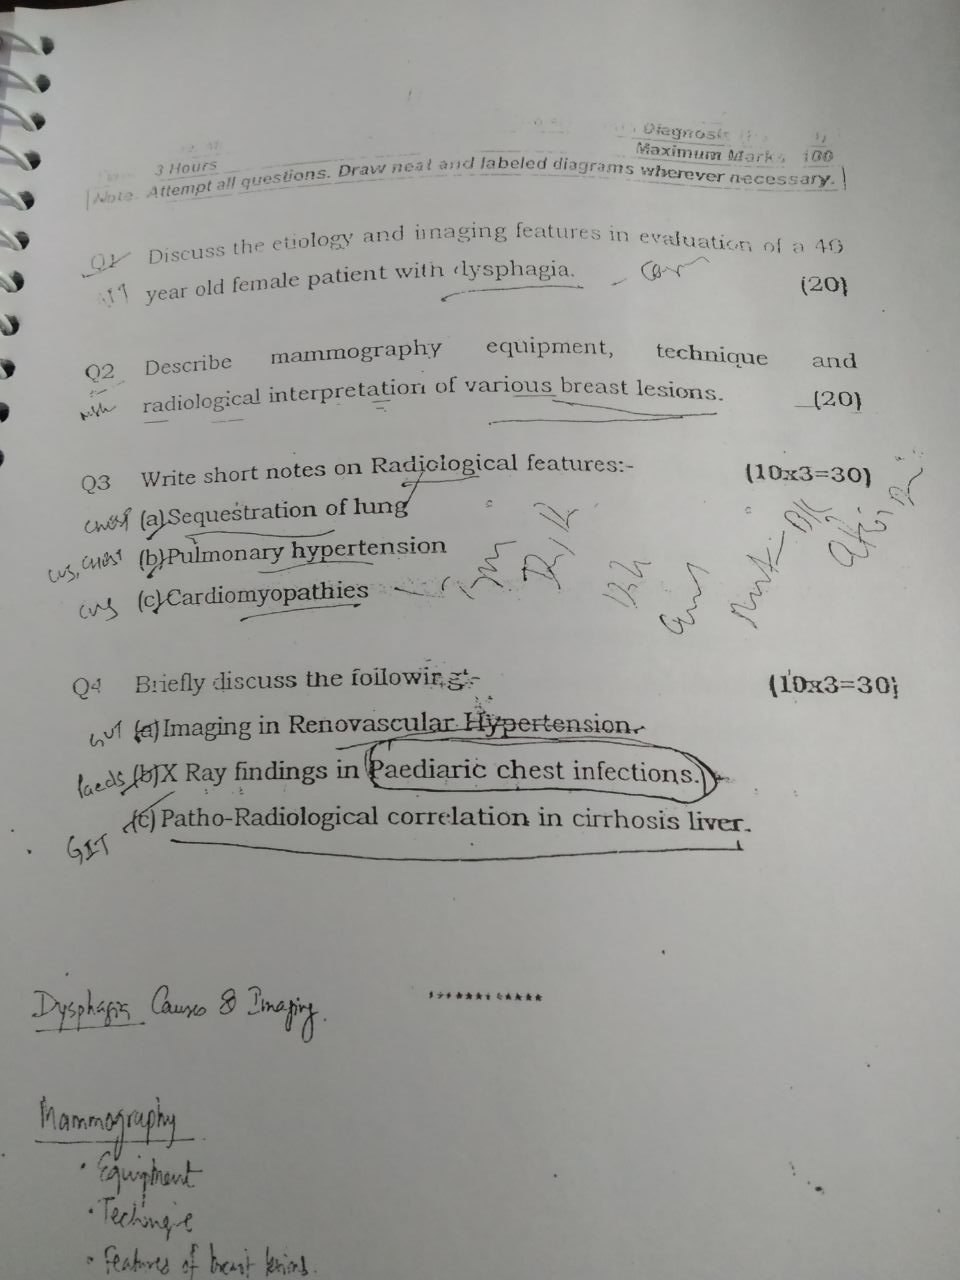 Diagnosis
3 Hours Maximum Marks 100
Note. Attempt all questions. Draw neat and labeled diagrams wherever necessary.
Q1 Discuss the etiology and imaging features in evaluation of a 40
year old female patient with dysphagia. (20)
Q2 Describe mammography equipment, technique and
radiological interpretation of various breast lesions. (20)
Q3 Write short notes on Radiological features:- (10x3=30)
chest (a) Sequestration of lung
cvs, chest (b) Pulmonary hypertension
cvs (c) Cardiomyopathies
Q4 Briefly discuss the following:- (10x3=30)
(a) Imaging in Renovascular Hypertension.
Paeds (b) X Ray findings in Paediaric chest infections.
GIT (c) Patho-Radiological correlation in cirrhosis liver.
************
Dysphagia Causes & Imaging.
Mammography
• Equipment
• Technique
• Features of breast lesions.